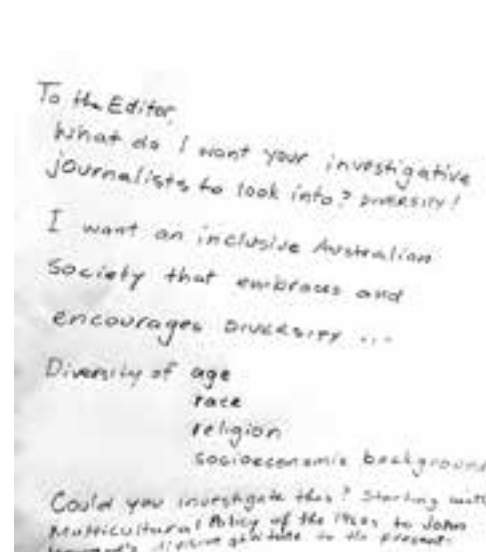 To the Editor,
What do I want your investigative
journalists to look into? DIVERSITY!
I want an inclusive Australian
Society that embraces and
encourages DIVERSITY ...
Diversity of age
race
religion
socioeconomic background
Could you investigate this? Starting with
Multicultural Policy of the to John
Howard's divisive to the present.